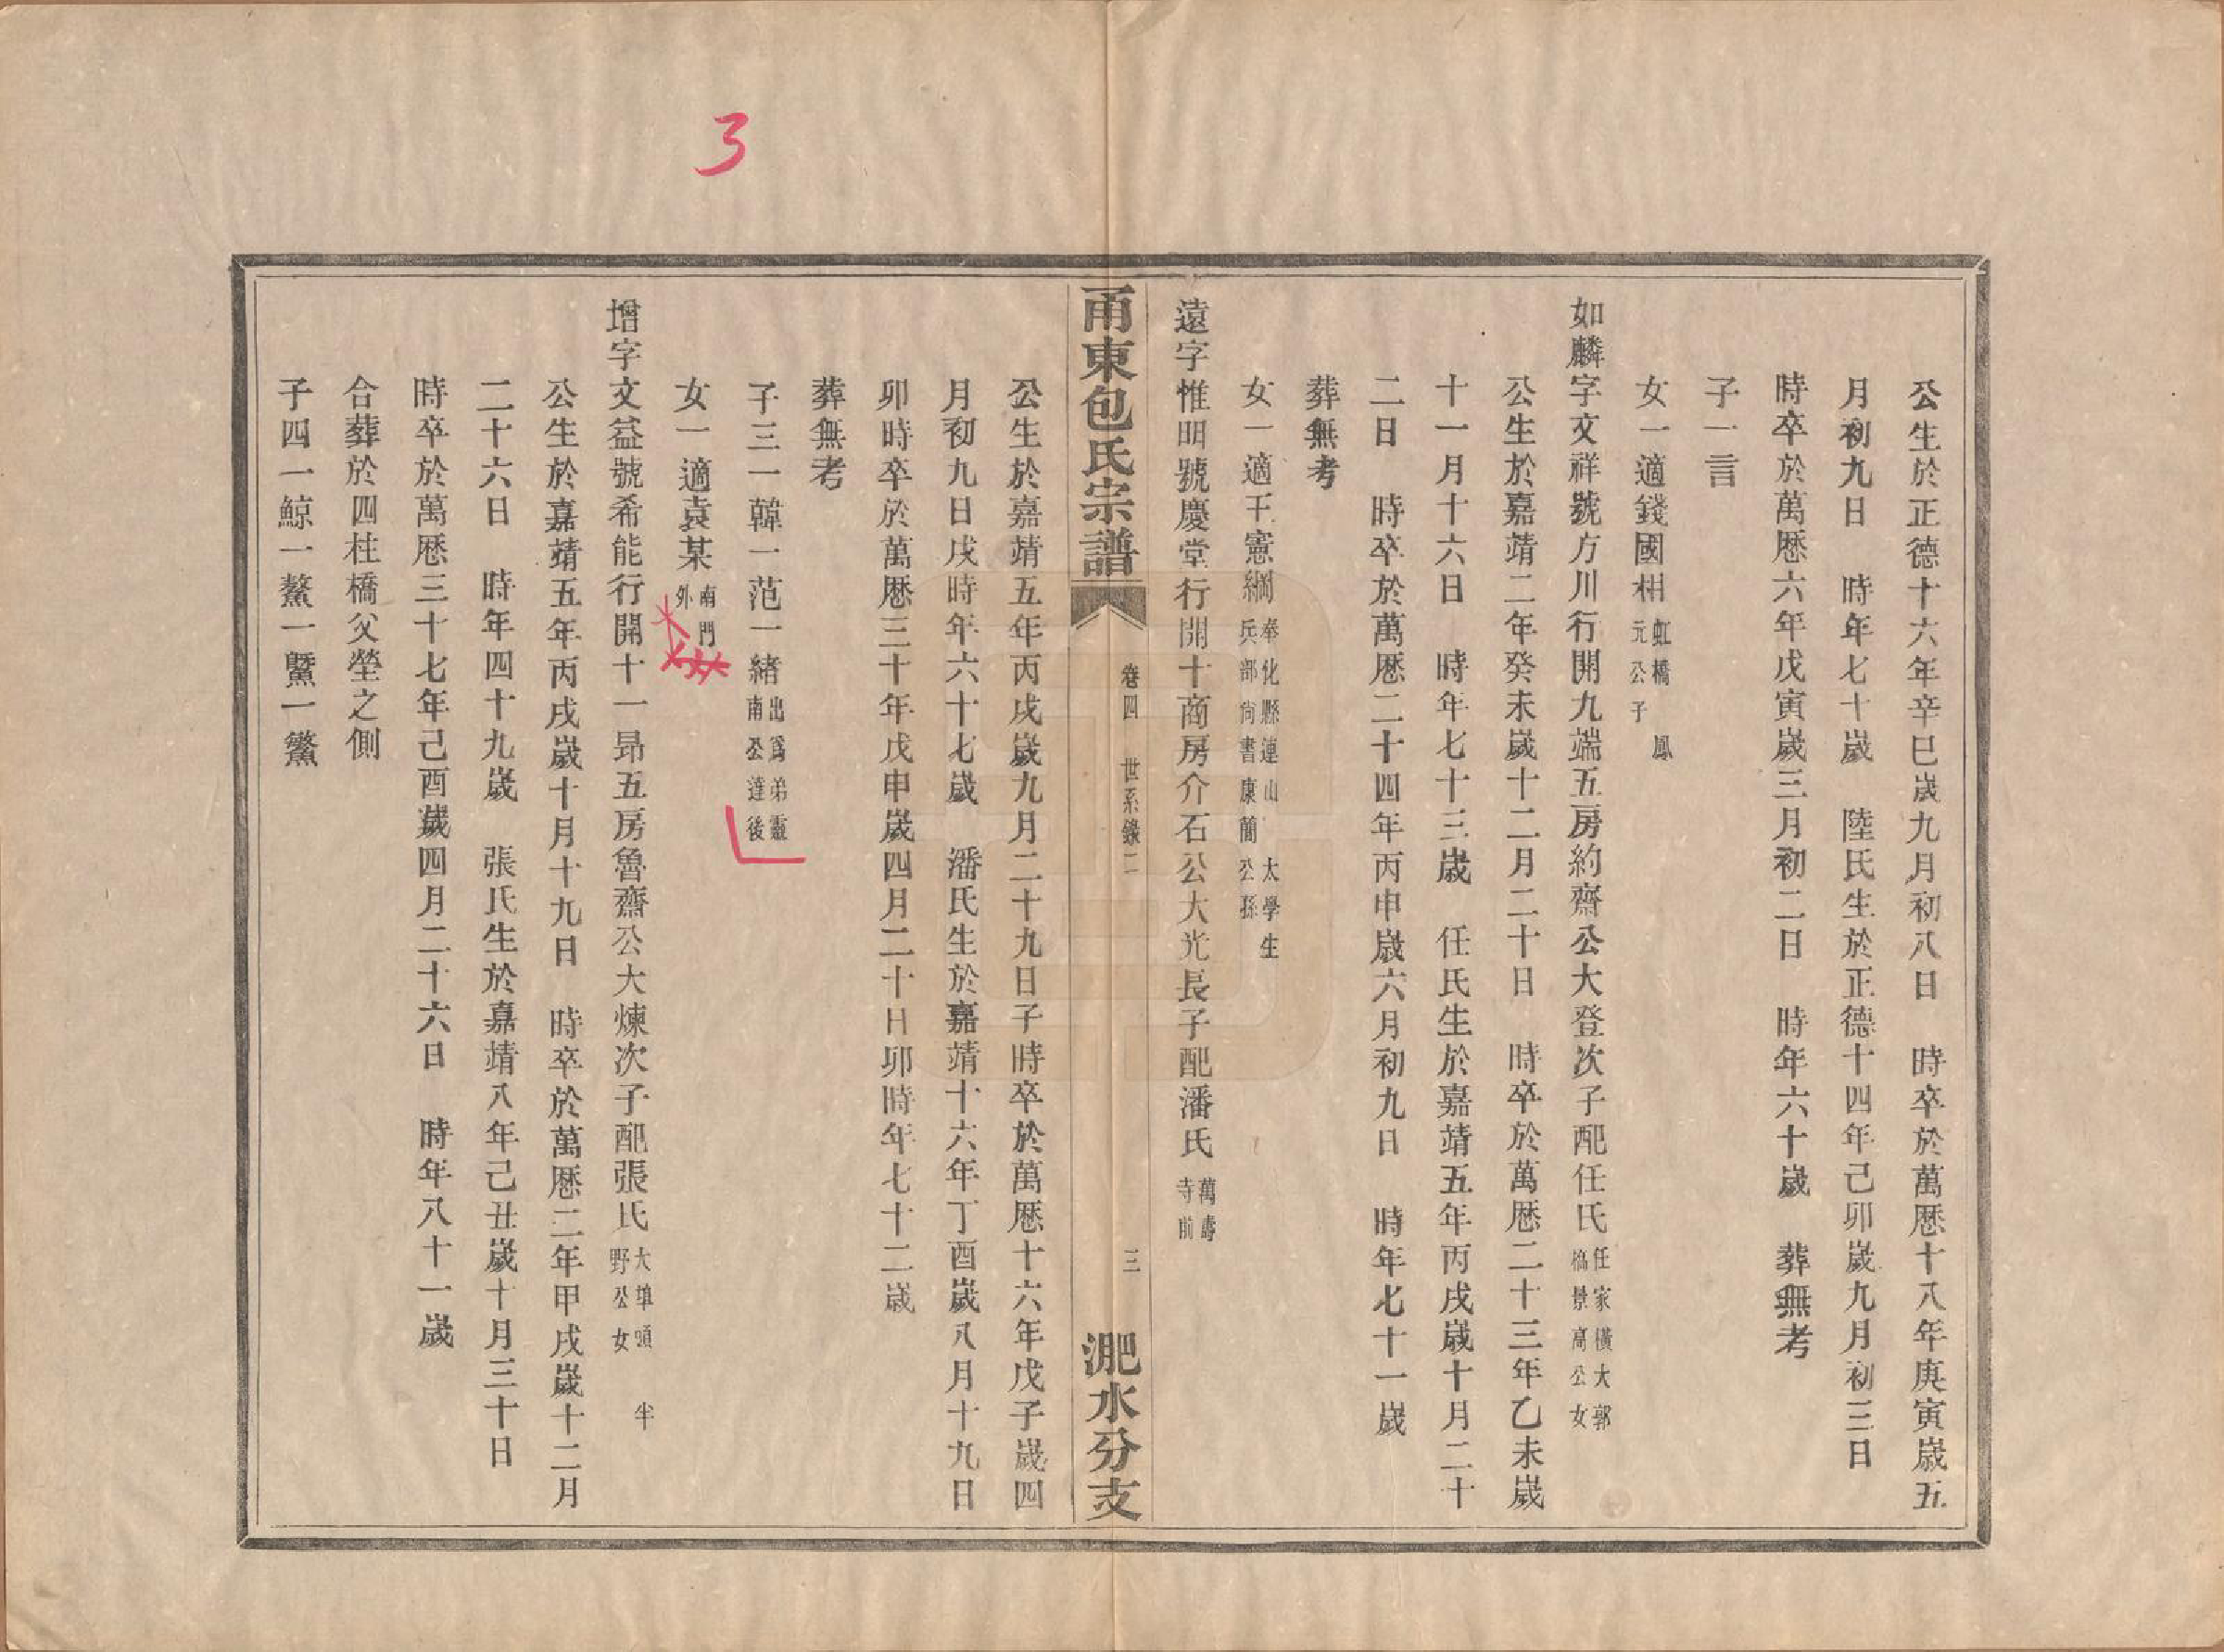 3
公生於正德十六年辛巳歲九月初八日　時卒於萬厯十八年庚寅歲五
月初九日　時年七十歲　陸氏生於正德十四年己卯歲九月初三日
時卒於萬厯六年戊寅歲三月初二日　時年六十歲　葬無考
子一言
女一適錢國相虹橋　鳳元公子
如麟字文祥號方川行開九端五房約齋公大登次子配任氏任家橫大郭橋景高公女
公生於嘉靖二年癸未歲十二月二十日　時卒於萬厯二十三年乙未歲
十一月十六日　時年七十三歲　任氏生於嘉靖五年丙戌歲十月二十
二日　時卒於萬厯二十四年丙申歲六月初九日　時年七十一歲
葬無考
女一適王憲綱奉化縣連山　太學生兵部尚書康簡公孫
遠字惟明號慶堂行開十商房介石公大光長子配潘氏萬壽寺前
甬東包氏宗譜
卷四　世系錄二
三
淝水分支
公生於嘉靖五年丙戌歲九月二十九日子時卒於萬厯十六年戊子歲四
月初九日戌時年六十七歲　潘氏生於嘉靖十六年丁酉歲八月十九日
卯時卒於萬厯三十年戊申歲四月二十日卯時年七十二歲
葬無考
子三一韓一范一緒出爲弟靈南公達後
女一適袁某南門外
增字文益號希能行開十一昴五房魯齋公大煉次子配張氏大墩頭　半野公女
公生於嘉靖五年丙戌歲十月十九日　時卒於萬厯二年甲戌歲十二月
二十六日　時年四十九歲　張氏生於嘉靖八年己丑歲十月三十日
時卒於萬厯三十七年己酉歲四月二十六日　時年八十一歲
合葬於四柱橋父塋之側
子四一鯨一鰲一鱀一鱉